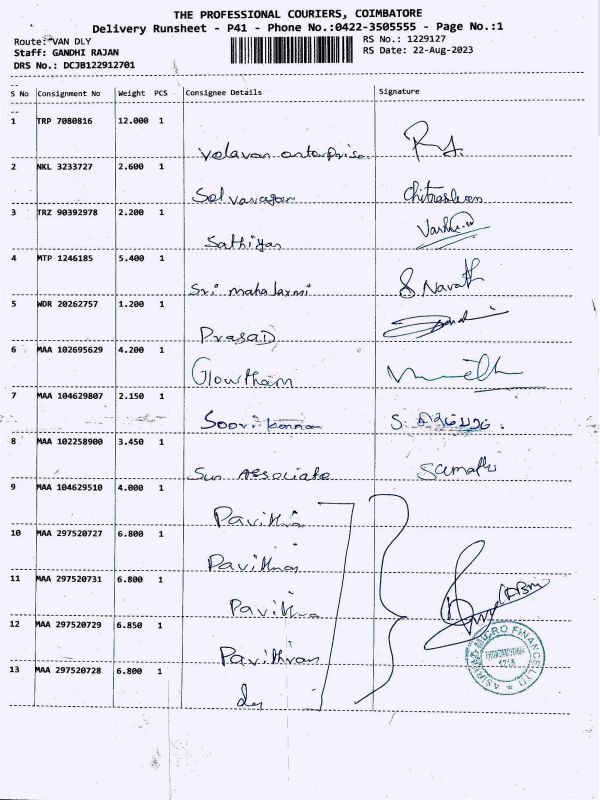 THE PROFESSIONAL COURIERS, COIMBATORE
Delivery Runsheet - P41 - Phone No.:0422-3505555 - Page No.:1
Route: VAN DLY RS No.: 1229127
Staff: GANDHI RAJAN RS Date: 22-Aug-2023
DRS No.: DCJB122912701
S No Consignment No Weight PCS Consignee Details Signature
1 TRP 7080816 12.000 1
Velavan enterprise
2 NKL 3233727 2.600 1
Selvarajan
3 TRZ 90392978 2.200 1
Sathiyan
4 MTP 1246185 5.400 1
Sri mahalaxmi S. Navath
5 WDR 20262757 1.200 1
Prasad
6 MAA 102695629 4.200 1
Glowtham
7 MAA 104629807 2.150 1
Soorikannan S.
8 MAA 102258900 3.450 1
Sun Associate
9 MAA 104629510 4.000 1
Pavithra
10 MAA 297520727 6.800 1
Pavithran
11 MAA 297520731 6.800 1
Pavithra
12 MAA 297520729 6.850 1
Pavithran
13 MAA 297520728 6.800 1
MICRO FINANCE LTD